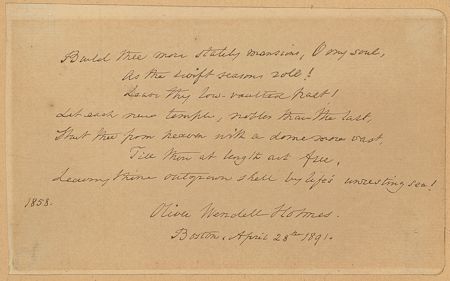 Build thee more stately mansions, O my soul,
As the swift seasons roll!
Leave thy low-vaulted past!
Let each new temple, nobler than the last,
Shut thee from heaven with a dome more vast,
Till thou at length art free,
Leaving thine outgrown shell by life's unresting sea!
1858.
Oliver Wendell Holmes.
Boston, April 28th 1891.